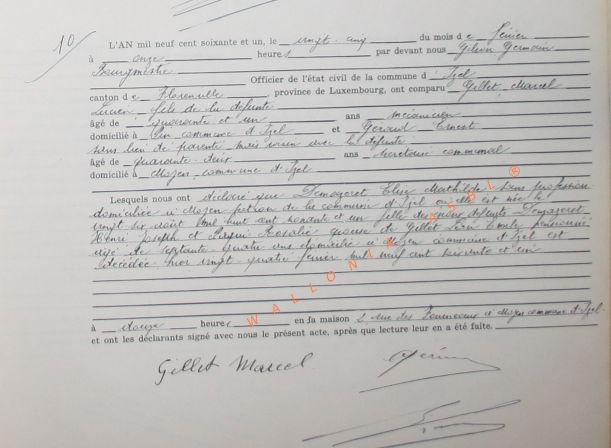 10
L'AN mil neuf cent soixante et un, le vingt cinq du mois de février
à onze heures par devant nous Gilson Germain
Bourgmestre Officier de l'état civil de la commune d'Izel
canton de Florenville, province de Luxembourg, ont comparu Gillet Marcel
Lucien, fils de la défunte
âgé de quarante et un ans mécanicien
domicilié à commune d'Izel et Ernest
sans lien de parenté mais voisin avec la défunte
âgé de quarante deux ans secrétaire communal
domicilié à Moyen commune d'Izel
Lesquels nous ont déclaré que Demazeret Elise Mathilde sans profession
domiciliée à Moyen de la commune d'Izel où elle est née le
vingt six août mil huit cent nonante et un fille des défunts Demazeret
Henri Joseph et Rosalie épouse de Gillet Emile pensionné
âgé de septante quatre ans domicilié à Moyen commune d'Izel est
décédée hier vingt quatre février mil neuf cent soixante et un
à douze heures en sa maison 2 rue des à Moyen commune d'Izel
et ont les déclarants signé avec nous le présent acte, après que lecture leur en a été faite.
Gillet Marcel